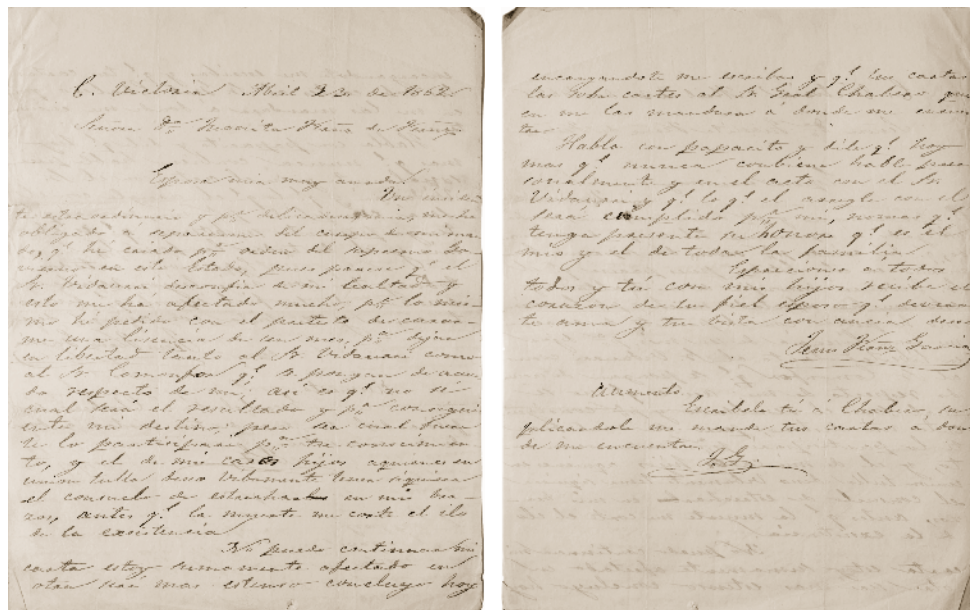 C. Victoria Abril 23 de 1862
Señora Da. Marita
Esposa mia muy amada.
Un inciden
te estraordinario y pr. delicadeza me ha
obligado a separarme del cuerpo de mi man
do, qe. hé caido pr. orden del Supremo Go
vierno en este Estado, pues parece qe. el
Sr. Vidaurri desconfia de mi lealtad y
esto me ha afectado mucho, pr. lo mis
mo hé pedido con el pretesto de curar
me una licencia de un mes, pa. dejar
en libertad tanto al Sr. Vidaurri como
al Sr. Comonfor qe. se pongan de acuer
do respecto de mi; asi es qe. no sé
cual será el resultado y pr. consigui
ente mi destino; pero sea cual fuere
te lo participaré pa. tu conocimien
to, y el de mis caros hijos a quienes en
union tulla deseo
el consuelo de estrecharlos en mis bra
zos, antes qe. la muerte me corte el ilo
de la existencia.
No puedo continuar mi
carta estoy sumamente afectado en
otra seré mas estenso concluyo hoy
encargandote me escribas y qe. tus cartas
las rotules al Sr. Gral Chabes pa. qe.
en me las mandara a donde me encuen
tre.
Habla con papacito y dile qe. hoy
mas qe. nunca conbiene hable perso
nalmente y en el acto con el Sr.
Vidaurri y qe. lo qe. el arregle con el
será cumplido pr. mi, nomas qe.
tenga presente su honor qe. es el
mio y el de toda la familia.
Espreciones a todos
todos y tú con mis hijos recibe el
corazon de tu fiel esposo qe. deveras
te ama y tu vista con ancia desea
Garcia
Aumento.
Escribele tú a Chabes, su
plicandole me mande tus cartas a don
de me encuentre.
J. G.